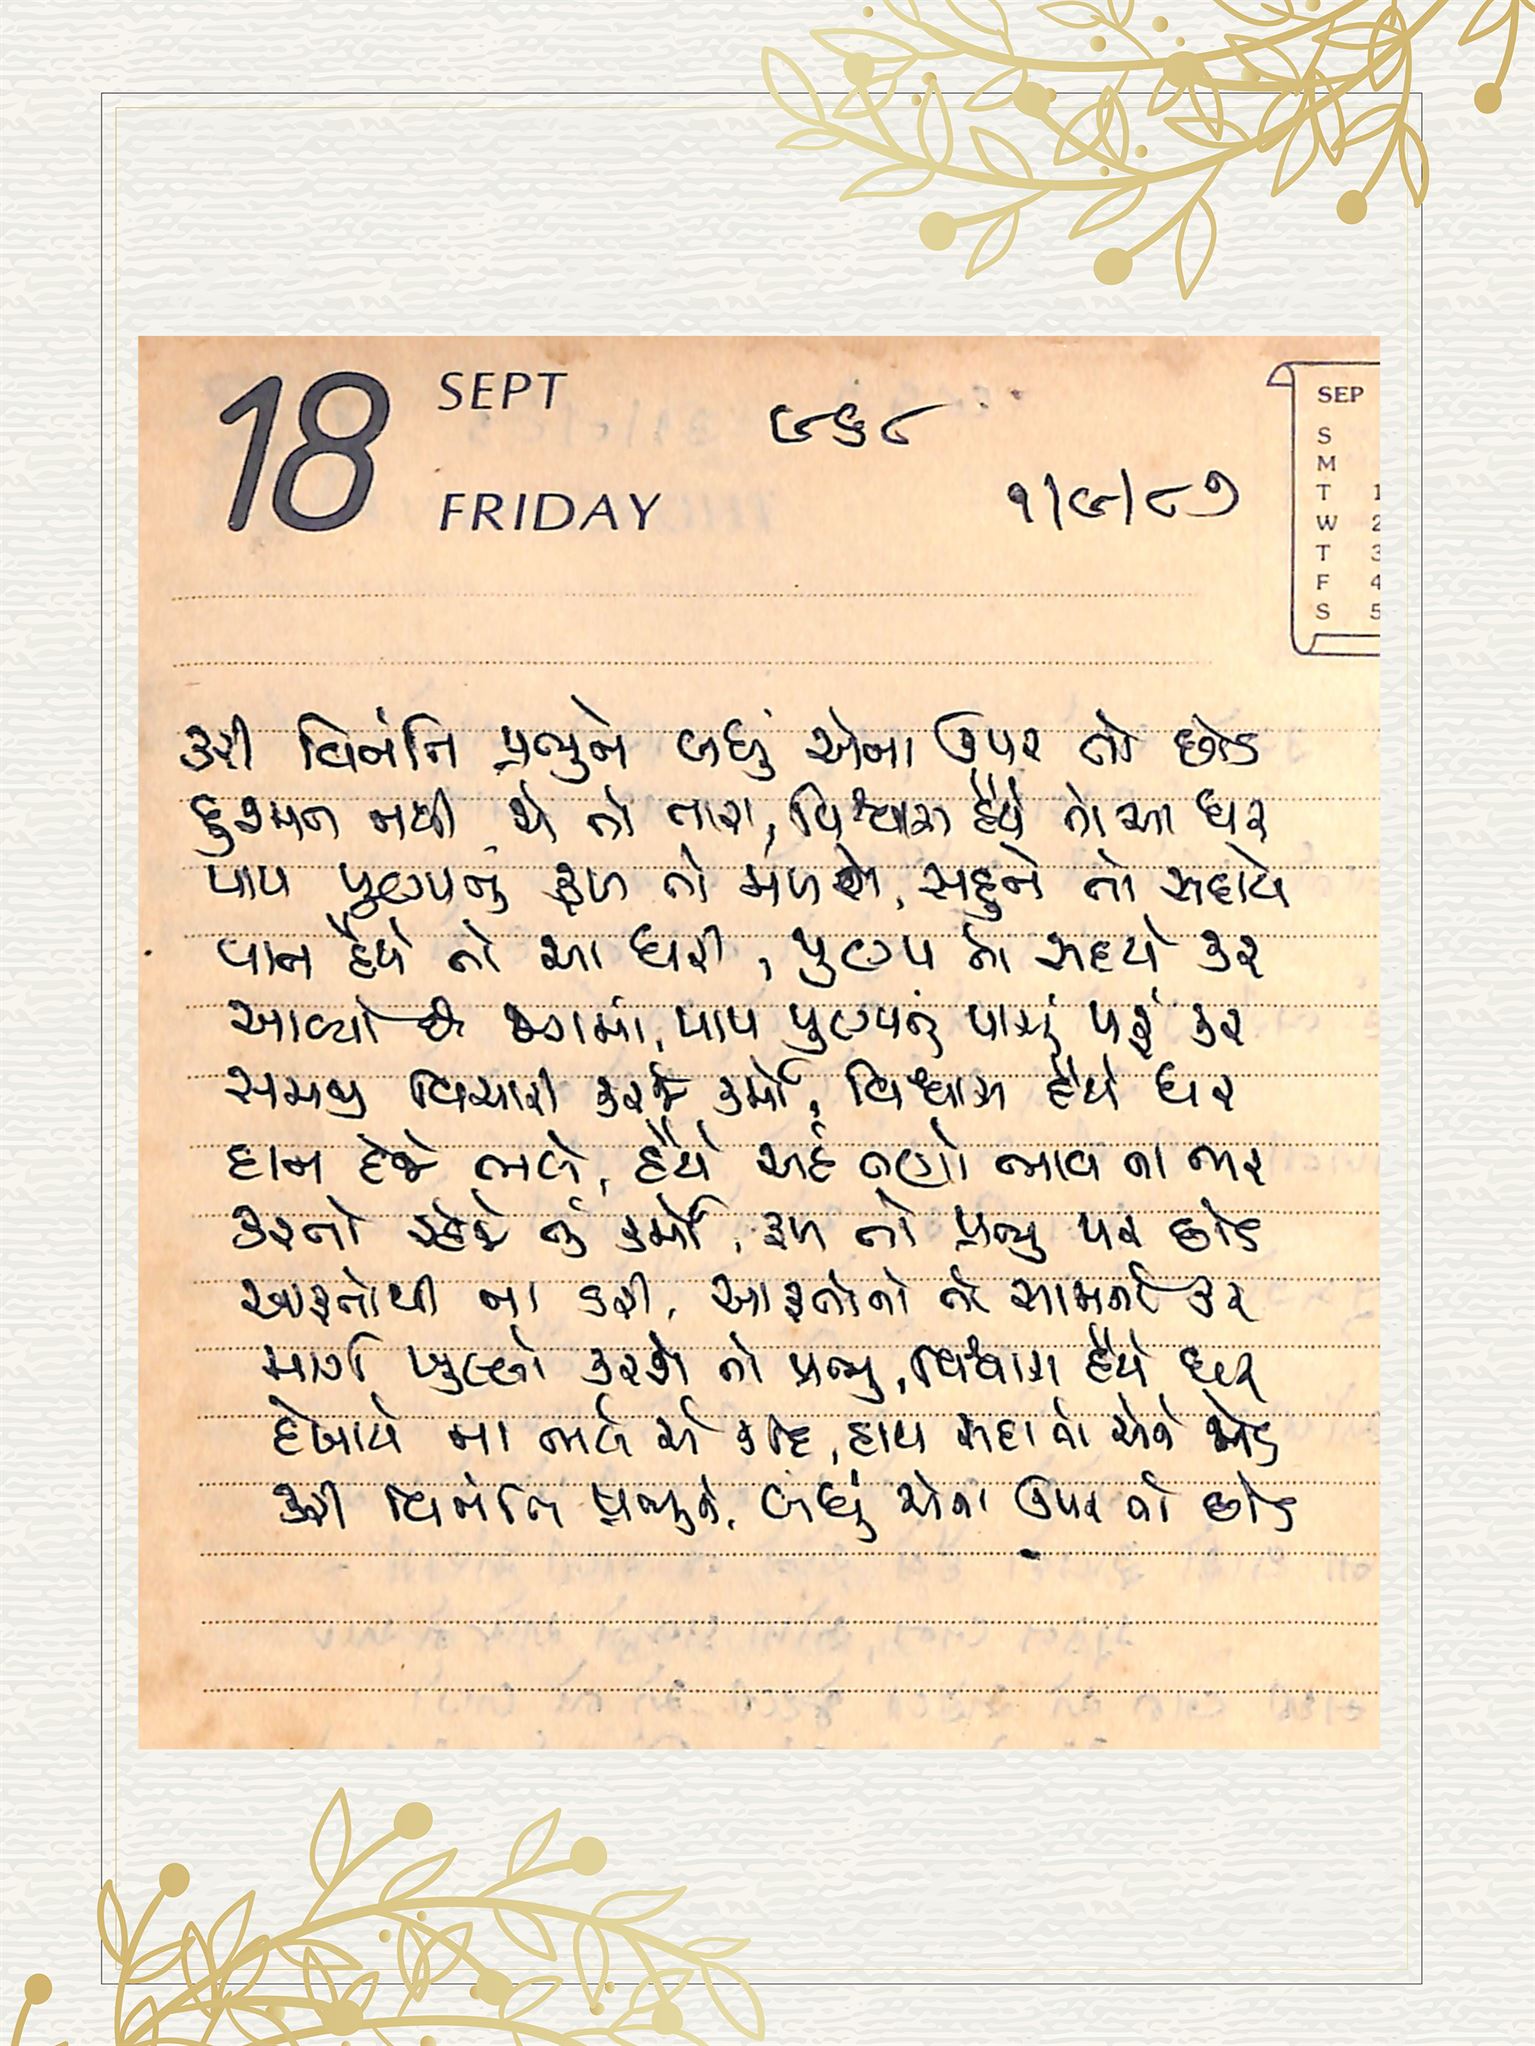 18 SEPT
૯૬૮
FRIDAY
૧/૯/૮૭
SEP
S
M
T 1
W 2
T 3
F 4
S 5
કરી વિનંતિ પ્રભુને બધું એના ઉપર તો છોડ
દુશ્મન નથી એ તો તારા, વિશ્વાસ હૈયે તો આ ધર
પાપ પુણ્યનું ફળ તો મળશે, સહુને તો સદાયે
વાત હૈયે તો આ ધરી, પુણ્ય તો સદાયે કર
આવ્યો છે જગમાં, પાપ પુણ્યનું પાસું પરું કર
સમજી વિચારી કરજે કર્મો, વિશ્વાસ હૈયે ધર
દાન દેજે ભલે, હૈયે અહં તણો ભાવ ના ભર
કરતો રહેજે તું કર્મો, ફળ તો પ્રભુ પર છોડ
આફતોથી ના ડરી, આફતોનો તો સામનો કર
માર્ગ ખુલ્લો કરશે તો પ્રભુ, વિશ્વાસ હૈયે ધર
દેખાયે ના ભલે એ કદિ, હાથ સદા તો એને જોડ
કરી વિનંતિ પ્રભુને, બધું એના ઉપર તો છોડ